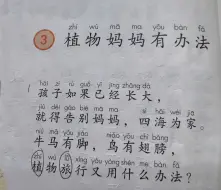 zhí wù mā ma yǒu bàn fǎ
3 植物妈妈有办法
hái zi rú guǒ yǐ jīng zhǎng dà
孩子如果已经长大，
jiù děi gào bié mā ma sì hǎi wéi jiā
就得告别妈妈，四海为家。
niú mǎ yǒu jiǎo niǎo yǒu chì bǎng
牛马有脚，鸟有翅膀，
zhí wù lǚ xíng yòu yòng shén me bàn fǎ
植物旅行又用什么办法？